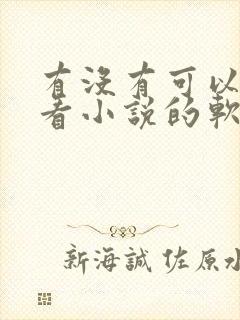 有没有可以
看小说的軟
新海誠 佐原水